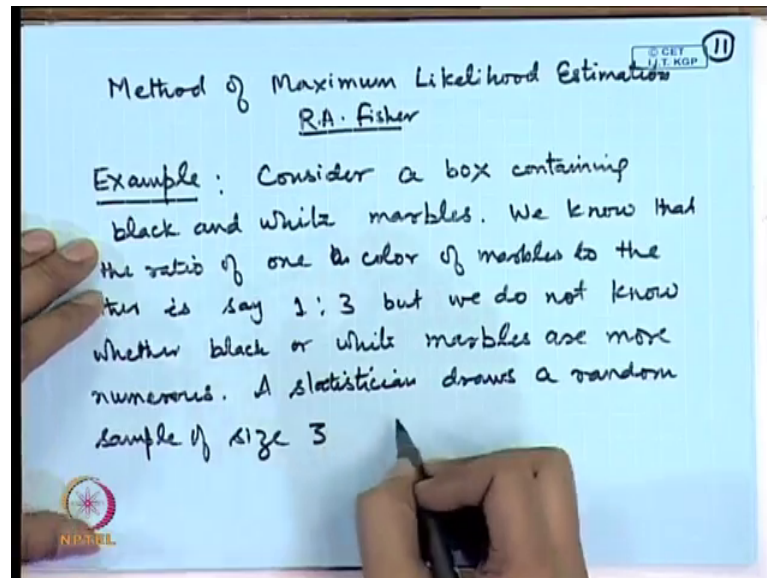 © CET
I.I.T. KGP
11
Method of Maximum Likelihood Estimation
R.A. Fisher
Example : Consider a box containing
black and white marbles. We know that
the ratio of one color of marbles to the
is say 1 : 3 but we do not know
whether black or white marbles are more
numerous. A statistician draws a random
sample of size 3
NPTEL